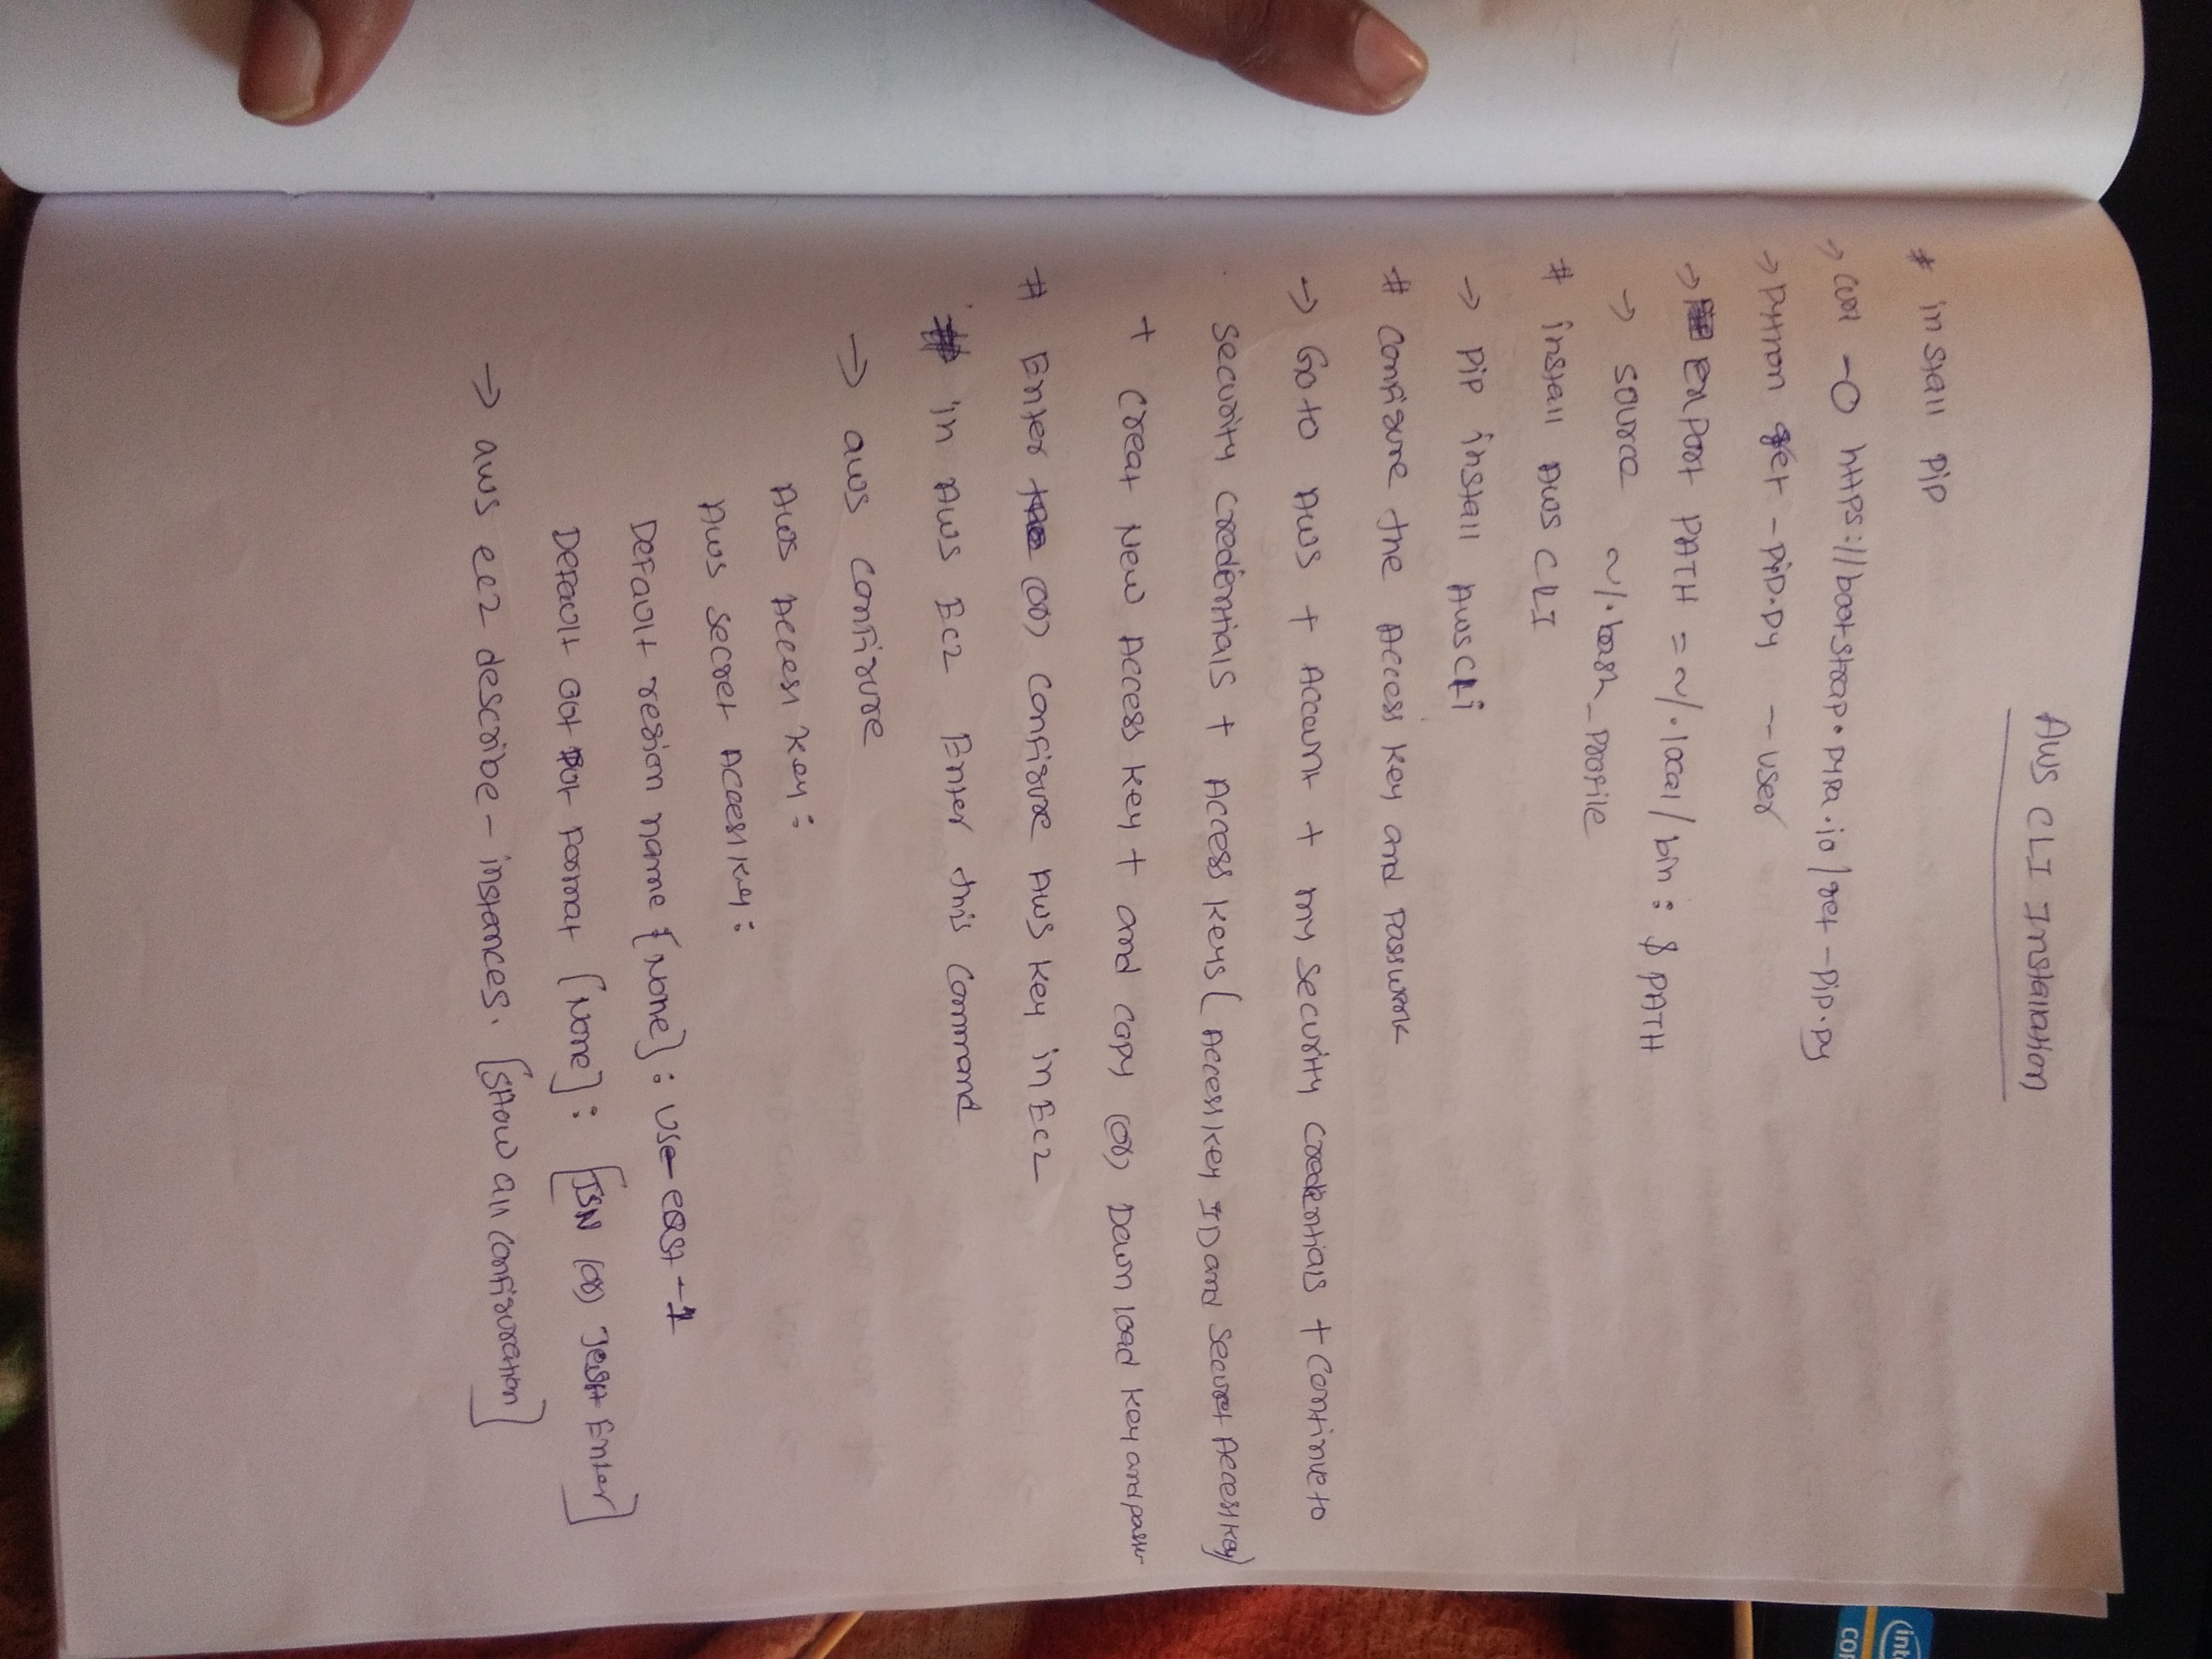 AWS CLI Installation
# install pip
→ curl -O https://bootstrap.pypa.io/get-pip.py
→ python get-pip.py --user
→ export PATH = ~/.local/bin: $PATH
→ source ~/.bash_profile
# install AWS CLI
→ pip install AWSCLi
# configure the Access key and passwork
→ Go to AWS + Account + my security credentials + continue to
security credentials + Access keys (Access key ID and Secret Access key)
+ creat New Access key + and copy (or) Down load key and
# Enter (or) configure AWS key in Ec2
# in AWS Ec2 Enter this command
→ aws configure
AWS Access key:
AWS secret Access key:
Default region name [None]: us-east-1
Default out put Format [None]: [JSN (or) Enter]
→ aws ec2 describe-instances. [Show all configuration]
inte
COR